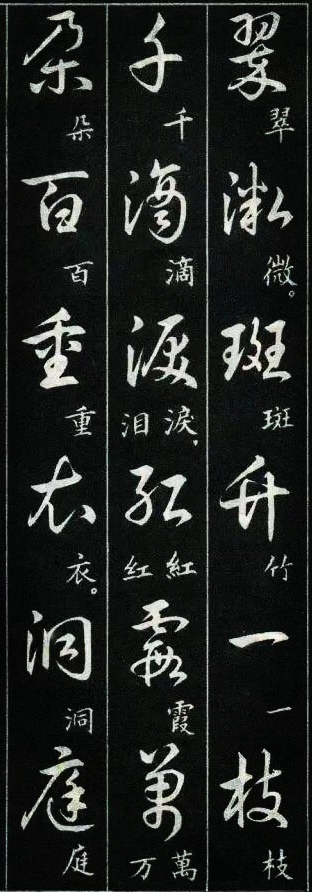 翠微斑竹一枝
翠微。斑竹一枝
千滴淚紅霞萬
千滴淚,泪紅红霞萬万
朵百重衣洞庭
朵百重衣。洞庭